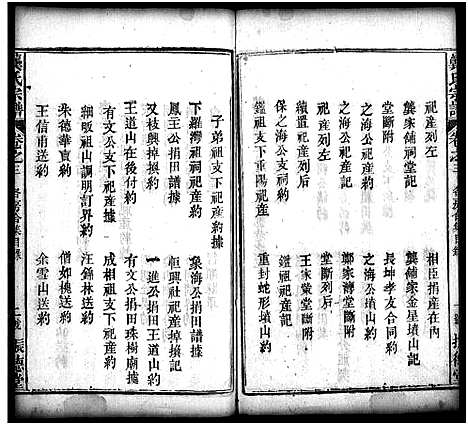 龔氏宗譜
卷之三
各房合集目錄
祀產列左
相臣捐產在內
龔家鋪祠堂記
龔家鋪金星墳山約
之海公祀產
長坤孝友合同約
堂斷附
之海公墳山約
續置祀產約
鄭家灣堂斷附
堂斷列后
王家嶺堂斷
鑑祖支下祀產
鑑祖祀產約
鑑祖支下重陽祀產
重封蛇形墳山約
子弟祖支下祀產據
下羅湾祖祠祀產據
象海公捐田譜據
鳳主公捐田譜據
恒興社祀產掉換記
又枝興掉換約
一進公捐田王道山約
王道山在後行約
有文公捐田珠樹廟據
有文公支下祀產據
成相祖支下祀產約
細畈祖山調朋訂界約
汪錦林送約
朱德華賣約
僧如桃送約
王信甫送約
余雲山送約
龔氏宗譜
卷之三
各房合集目錄
振德堂